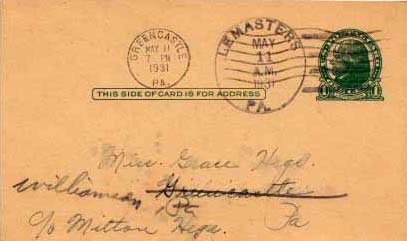 GREENCASTLE
MAY 11
7 PM
1931
PA.
LEMASTERS
MAY
11
A.M.
1931
PA.
1 1
THIS SIDE OF CARD IS FOR ADDRESS
Miss. Grace Hege.
Williamson Greencastle
Pa
Pa
c/o Milton Hege.